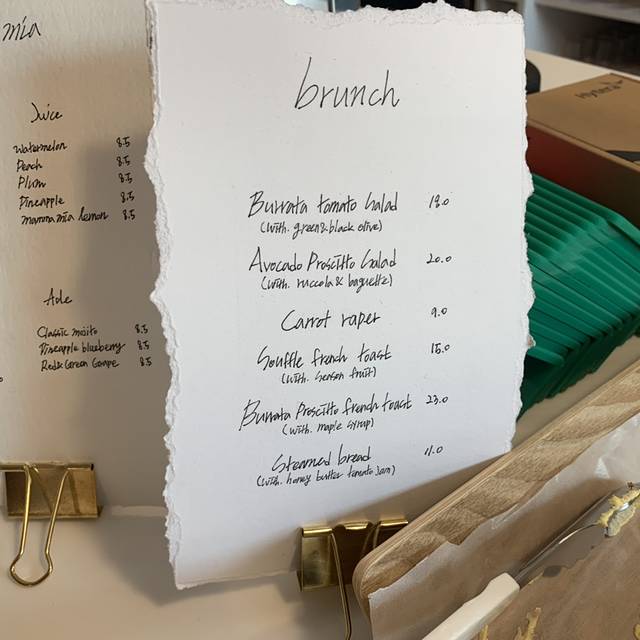 mia
Juice
Watermelon 8.5
Peach 8.5
Plum 8.5
Pineapple 8.5
mamma mia lemon 8.5
Ade
Classic mojito 8.5
Pineapple blueberry 8.5
Red & Green Grape 8.5
brunch
Burrata tomato Salad 18.0
(with. green & black olive)
Avocado Proscitto Salad 20.0
(with. ruccola & baguette)
Carrot raper 9.0
Souffle french toast
(with. season fruit)
Burrata Proscitto french toast 23.0
(with. maple syrup)
Steamed bread
(with. honey butter tomato Jam)
Hytera